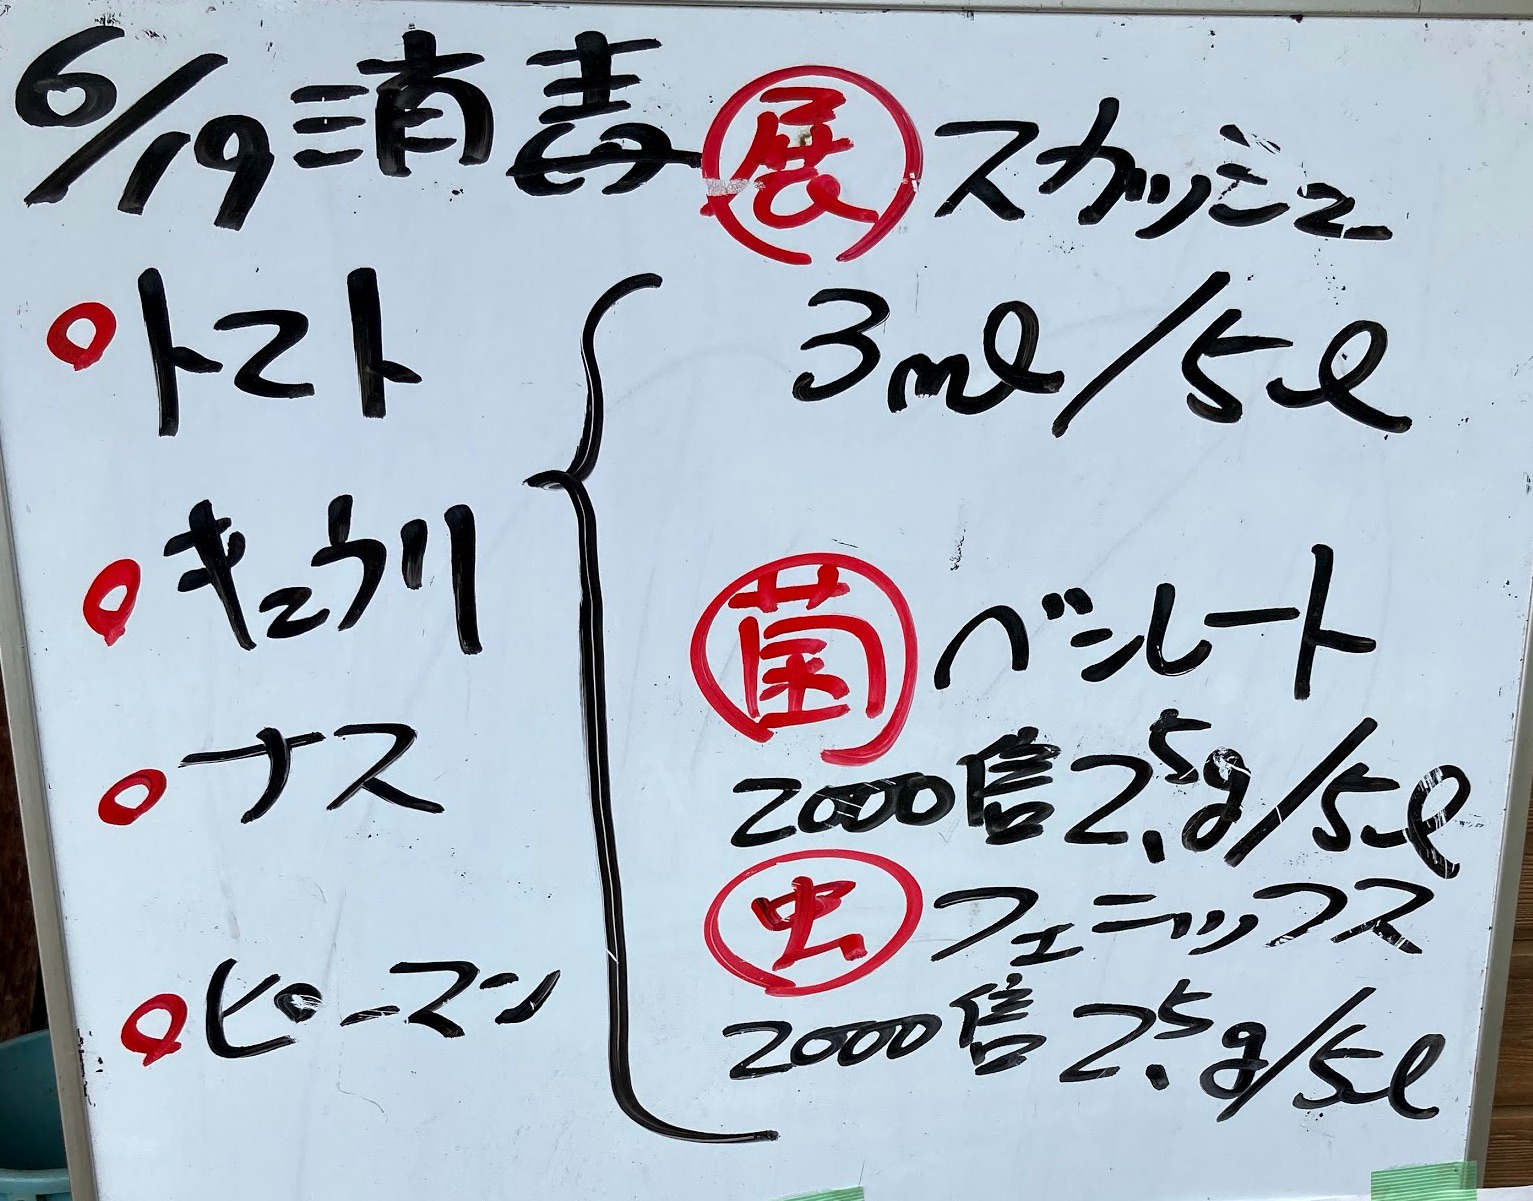 6/19消毒
○トマト
○キュウリ
○ナス
○ピーマン
展 スカッシュ
3ml/5l
菌 ベシレート
2000倍 2.5g/5l
虫 フェニックス
2000倍 2.5g/5l